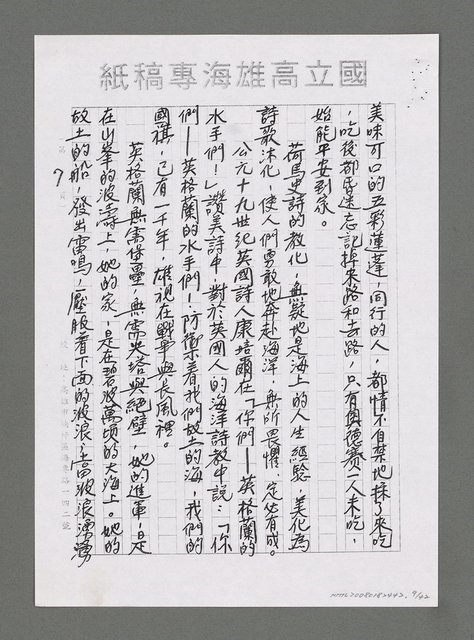 國立高雄海專稿紙
美味可口的五彩蓮蓬，同行的人，都情不自禁地採了來吃
，吃後都昏迷忘記掉來路和去路，只有奧德賽一人未吃，
始能平安到家。
荷馬史詩的教化，無疑地是海上的人生經驗，美化為
詩歌沐化，使人們勇敢地奔赴海洋，無所畏懼，定必有成。
公元十九世紀英國詩人康培爾在「你們——英格蘭的
水手們！」讚美詩中，對於英國人的海洋詩教中說：「你
們——英格蘭的水手們！防衛著我們故土的海，我們的
國旗，已有一千年，雄視在戰爭與長風裡。
英格蘭無需堡壘，無需尖塔與絕壁，她的進軍，是
在山峯的波濤上，她的家，是在碧波萬頃的大海上。她的
故土的船，發出雷鳴，壓服着下面的波浪，當波浪湧湧
第7頁
校址：高雄市 海專路一四二號
NMTL20080182442, 9/42